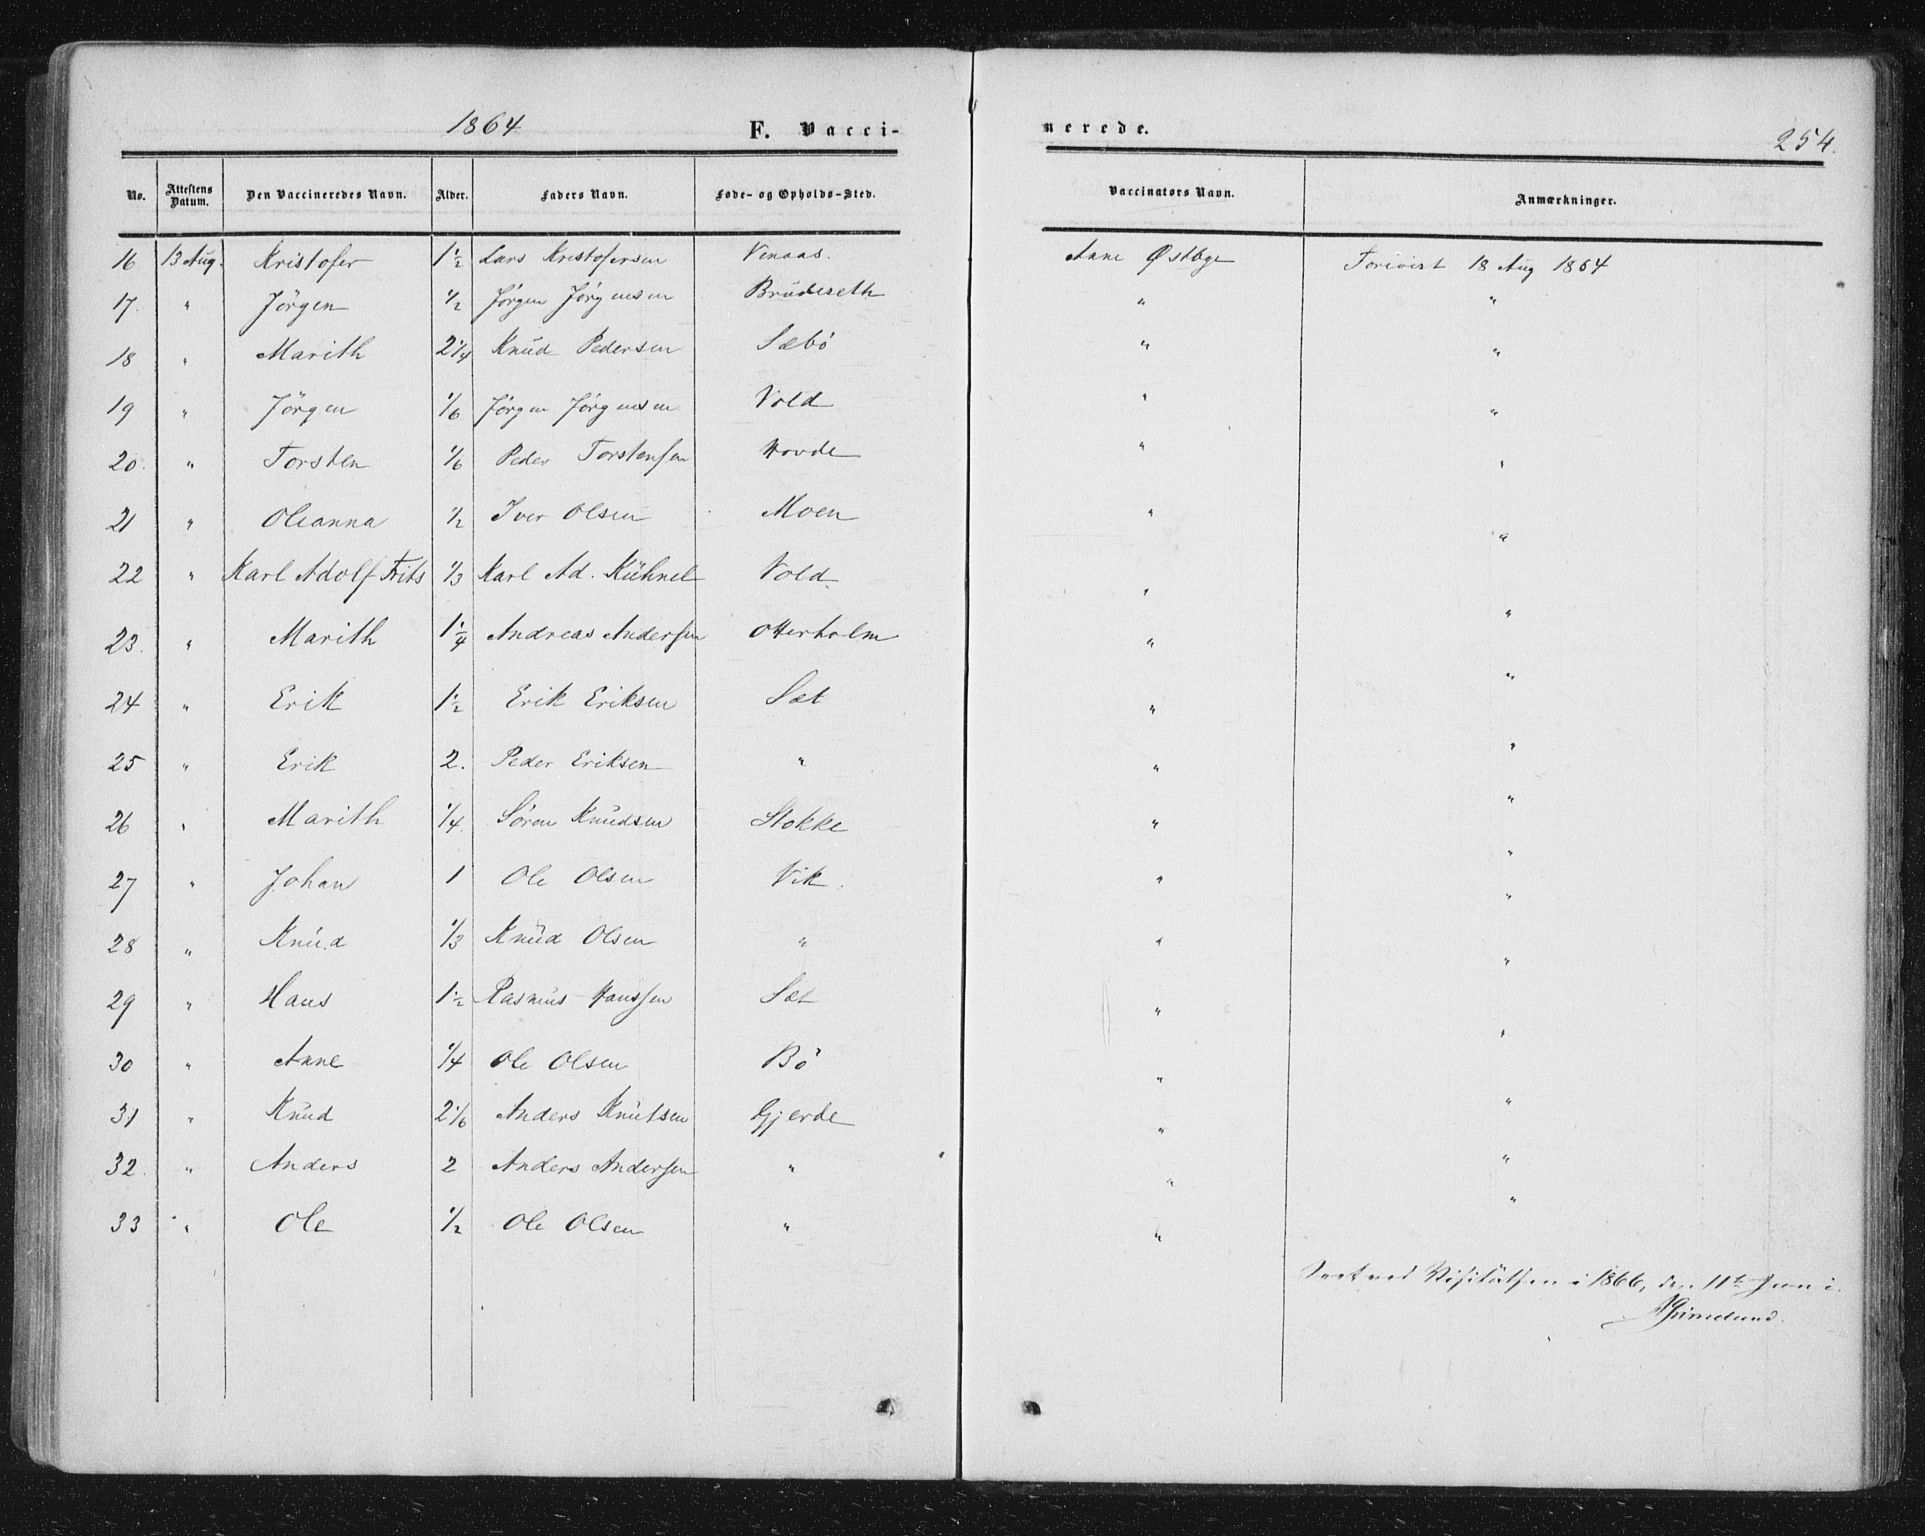 1864
F. Vacci-
nerede.
254.
No. Attestens Datum. Den Vaccineredes Navn. Alder. Faders Navn. Føde- og Opholds-Sted. Vaccinators Navn. Anmærkninger.
16 13 Aug. Kristofer 1½ Lars Kristofersen Venaas. Anne Østbye Foreviist 18 Aug 1864
17. " Jörgen ½ Jörgen Jörgensen Brüdeseth " "
18 " Marith 2¼ Knüd Pedersen Sæbö " "
19 " Jörgen 1/6 Jörgen Jörgensen Vold " "
20. " Torsten 1/6 Peder Torstensen Hovde " "
21 " Oleanna ½ Iver Olsen Moen " "
22 " Karl Adolf Frits 1/3 Karl Ad. Kühnel Vold " "
23. " Marith 1¼ Andreas Andersen Otterholm " "
24 " Erik 1½ Erik Eriksen Sæt " "
25 " Erik 2. Peder Eriksen " " "
26 " Marith ¼ Sören Knüdsen Stokke " "
27 " Johan 1 Ole Olsen Vik. " "
28 " Knüd 1/3 Knüd Olsen " " "
29 " Hans 1½ Rasmus Hanssen Sæt " "
30 " Anne ¼ Ole Olsen Bö " "
31 " Knüd 2 1/6 Anders Knütsen Gjerde " "
32. " Anders 2 Anders Andersen " " "
33 " Ole ½ Ole Olsen " " "
Seet ved Visitatsen i 1866, den 11te Juni.
Grimelund.